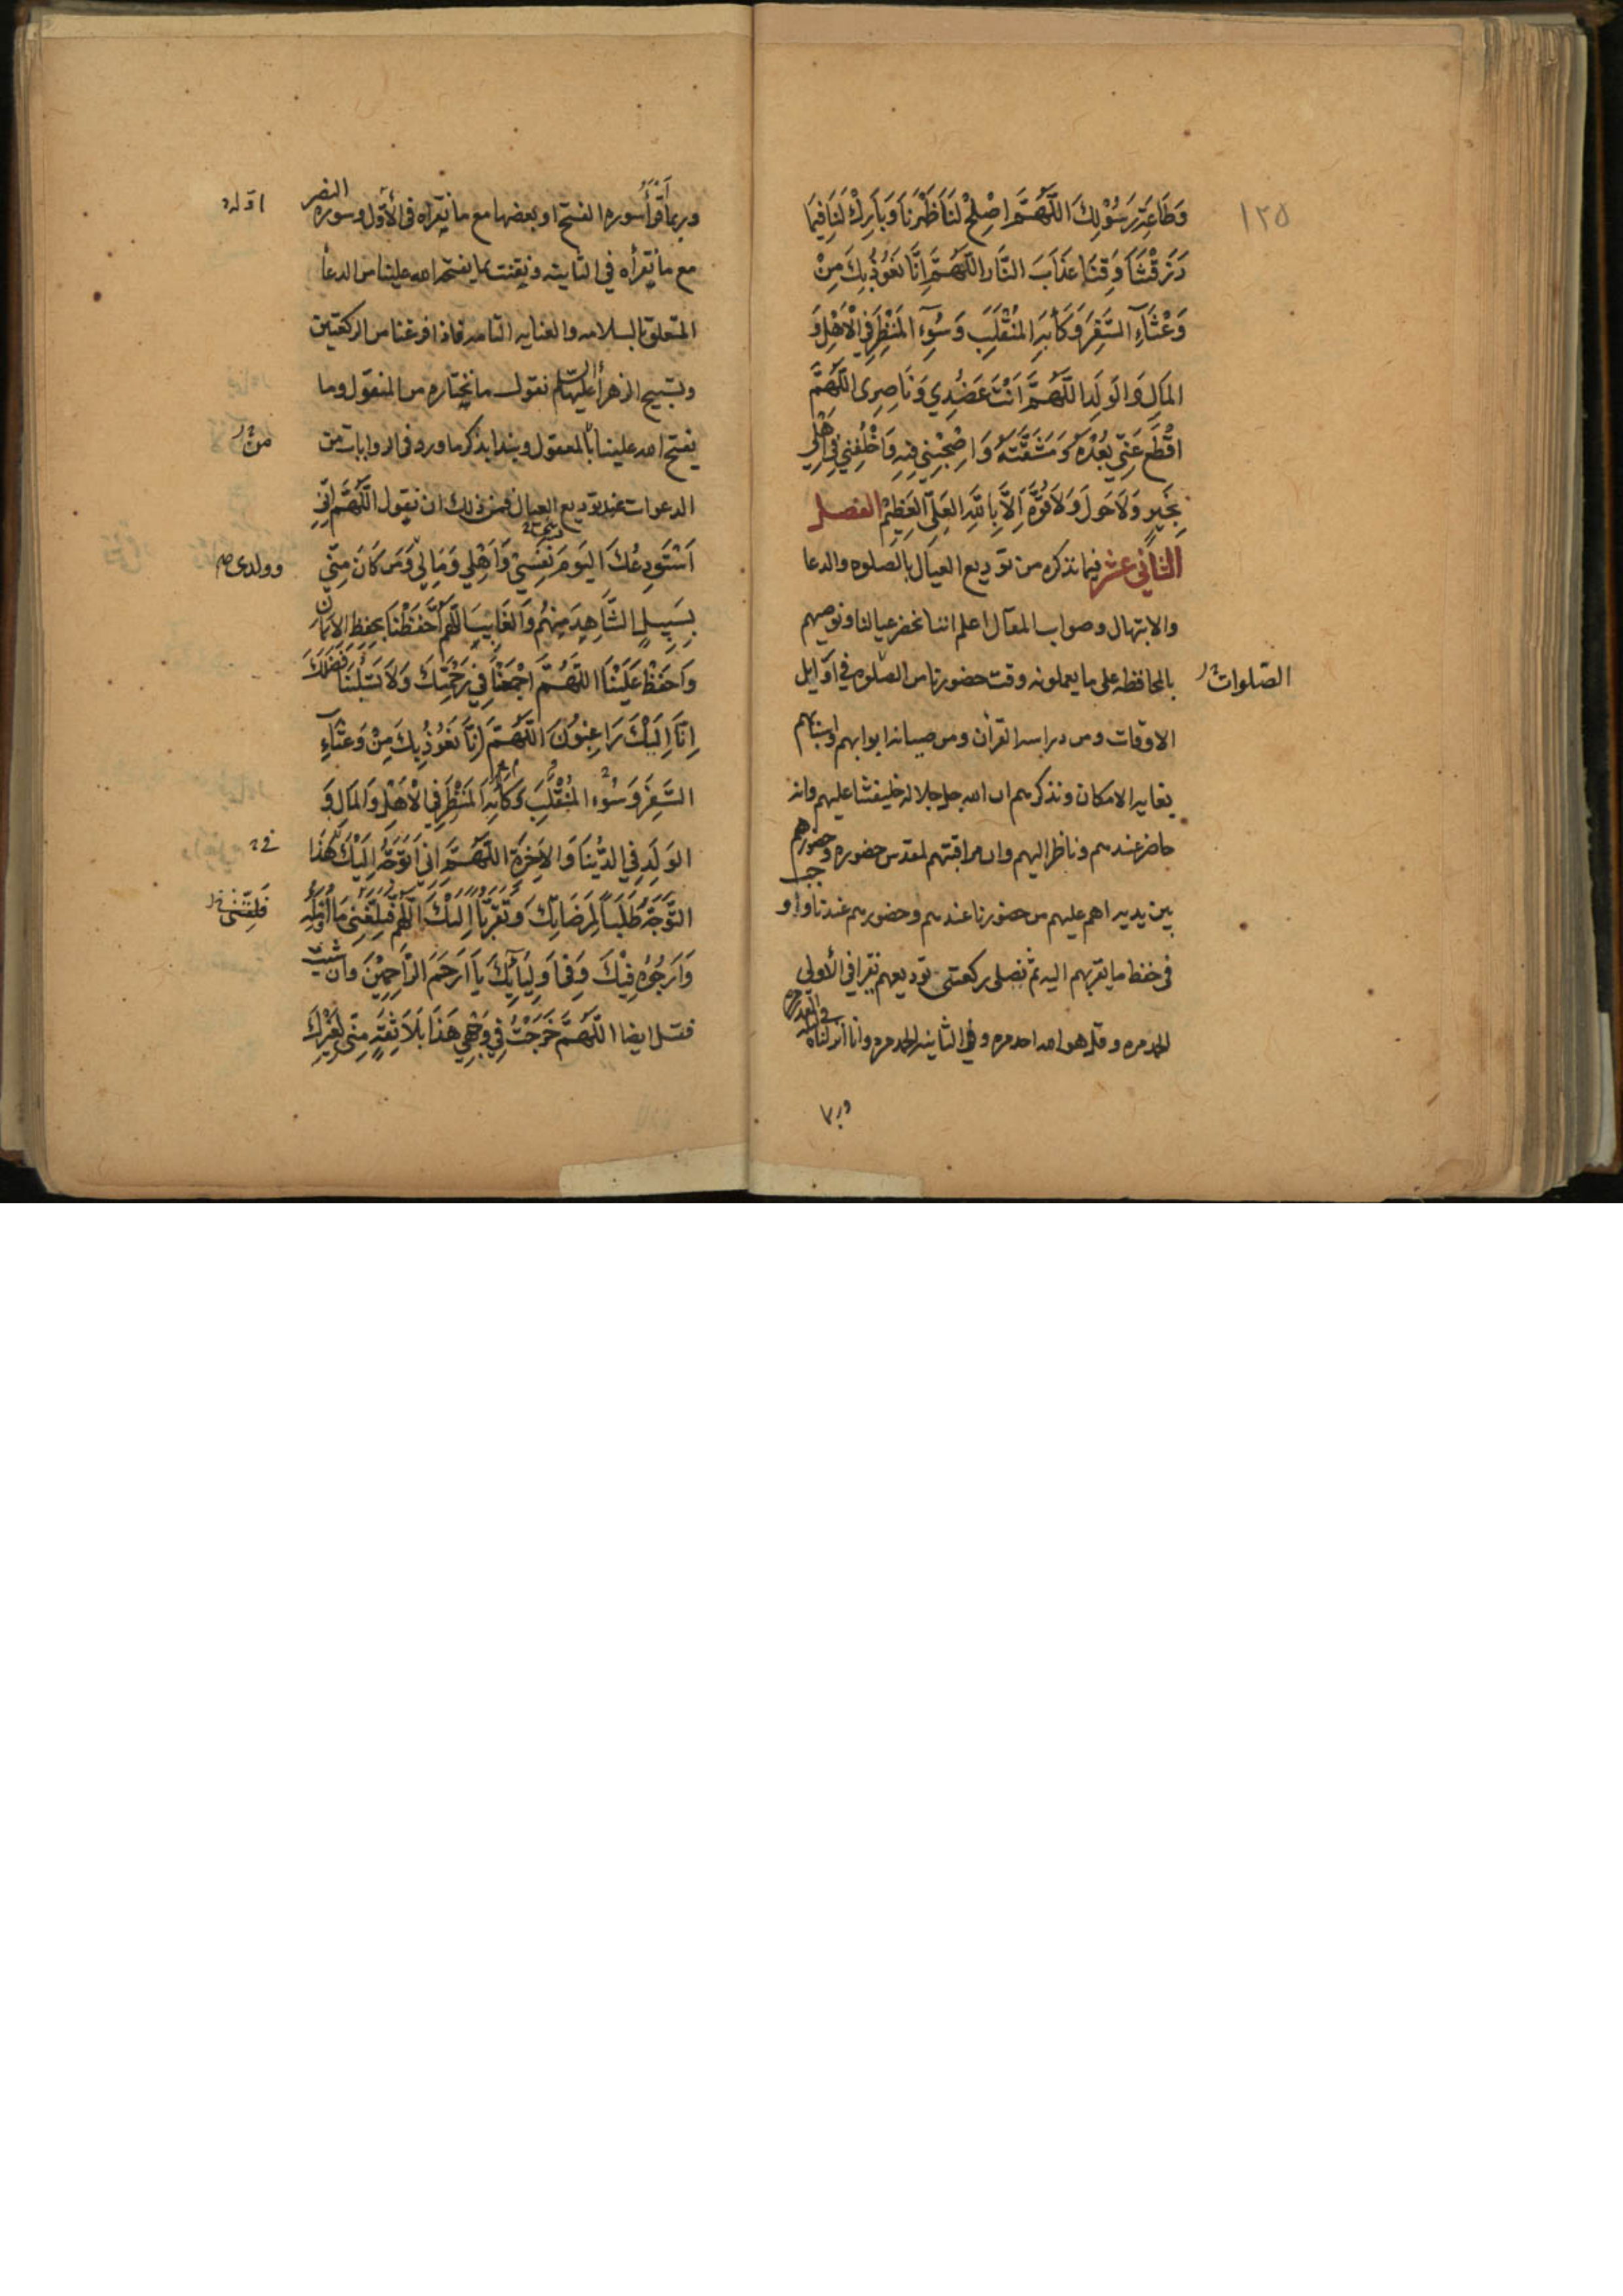 ١٢٥
وَطَاعَةِ رَسُوْلِكَ اللَّهُمَّ اصْلِحْ لَنَا ظَهْرَنَا وَبَارِكْ لَنَا فِيمَا
رَزَقْتَنَا وَقِنَا عَذَابَ النَّارِ اللَّهُمَّ اِنَّا نَعُوْذُ بِكَ مِنْ
وَعْثَاءِ السَّفَرِ وَكَآبَةِ المُنْقَلَبِ وَسُوءِ المَنْظَرِ فِي الْاَهْلِ وَ
المَالِ وَالوَلَدِ اللَّهُمَّ اَنْتَ عَضُدِي وَنَاصِرِى اللَّهُمَّ
اقْطَعْ عَنِّي بُعْدَهُ وَمَشَقَّتَهُ وَاصْحَبْنِي فِيهِ وَاخْلُفْنِي فِي اَهْلِي
بِخَيْرٍ وَلَا حَولَ وَلَا قُوَّةَ اِلَّا بِاللَّهِ العَلِىِّ العَظِيْمِ الفصل
الثاني عشر فيما نذكره من توديع العيال بالصلوه والدعا
والابتهال وصواب المقال اعلم اننا نحضر عيالنا ونوصيهم
بالمحافظه على ما يعملونه وقت حضورنا من الصلوه في اوايل
الصلوات
الاوقات ومن دراسه القرآن ومن صيانه ابوابهم واسبابهم
بغايه الامكان ونذكرهم ان الله جل جلاله خليفتنا عليهم وانه
حاضر عندهم وناظر اليهم وان مراقبتهم لمقدس حضوره وحضورهم
بين يديه اهم عليهم من حضورنا عندهم وحضورهم عندنا و
فى حفظ ما يقربهم اليه ثم نصلى ركعتى توديعهم نقرا فى الأولى
الحمد مره وقل هو الله احد مره وفى الثانيه الحمد مره وانا انزلناه
وربما
وربما قرأ سوره الفتح او بعضها مع ما نقراه فى الأول وسوره النصر
مع ما نقرأه في الثانيه ونقنت بما يفتحه الله علينا من الدعأ
المتعلق بالسلامه والعنايه التامه فاذا فرغنا من الركعتين
وتسبيح الزهرأ عليها السلام نقول ما نختاره من المنقول وما
يفتح الله علينا بالمعقول ونبدا بذكر ما ورد فى الروايات من
الدعوات عند توديع العيال فمن ذلك ان نقول اللَّهُمَّ اِنِّي
اَسْتَوْدِعُكَ اليَوْمَ نَفْسِيْ وَاَهْلِي وَمَالِي وَمَن كَانَ مِنِّي
وولدى
بِسَبِيلٍ الشَّاهِدَ مِنْهُم وَالغَايِبَ اللَّهُمَّ احْفَظْنَا بِحِفْظِ الاِيمَانِ
وَاحْفَظْ عَلَيْنَا اللَّهُمَّ اجْمَعْنَا فِي رَحْمَتِكَ وَلَا تَسْلُبْنَا فَضْلَكَ
اِنَّا اِلَيْكَ رَاغِبُونَ اللَّهُمَّ اِنَّا نَعُوْذُ بِكَ مِنْ وَعْثَاءِ
السَّفَرِ وَسُوْءِ المُنْقَلَبِ وَكَآبَةِ المَنْظَرِ فِي الْاَهْلِ وَالمَالِ وَ
الوَلَدِ فِي الدُّنْيَا وَالاَخِرَةِ اللَّهُمَّ اِنِّى اَتَوَجَّهُ اِلَيْكَ هَذَا
التَّوَجُّهَ طَلَبًا لِمَرْضَاتِكَ وَتَقَرُّبًا اِلَيْكَ اللَّهُمَّ فَبَلِّغْنِى مَا اُؤَمِّلُهُ
وَاَرْجُوْهُ فِيْكَ وَفِى اَوْلِيَائِكَ يَا اَرْحَمَ الرَّاحِمِيْنَ وان شئت
فقل ايضا اللَّهُمَّ خَرَجْتُ فِي وَجْهِي هَذَا بِلَا ثِقَةٍ مِنِّى لِغَيْرِكَ